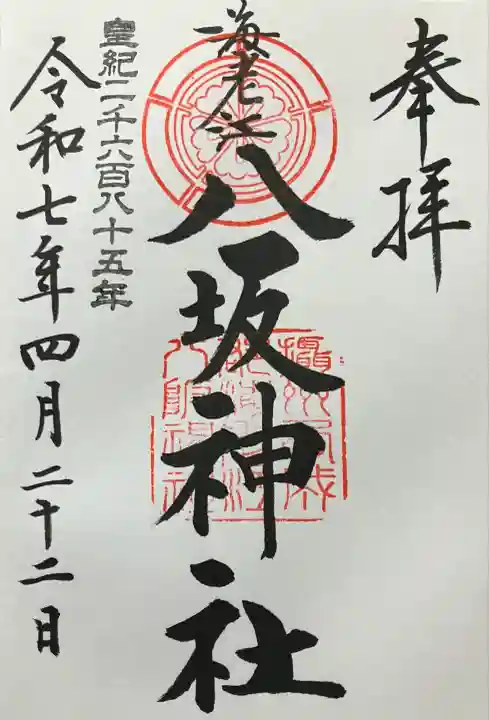 奉拝
海老江
八坂神社
皇紀二千六百八十五年
令和七年四月二十二日